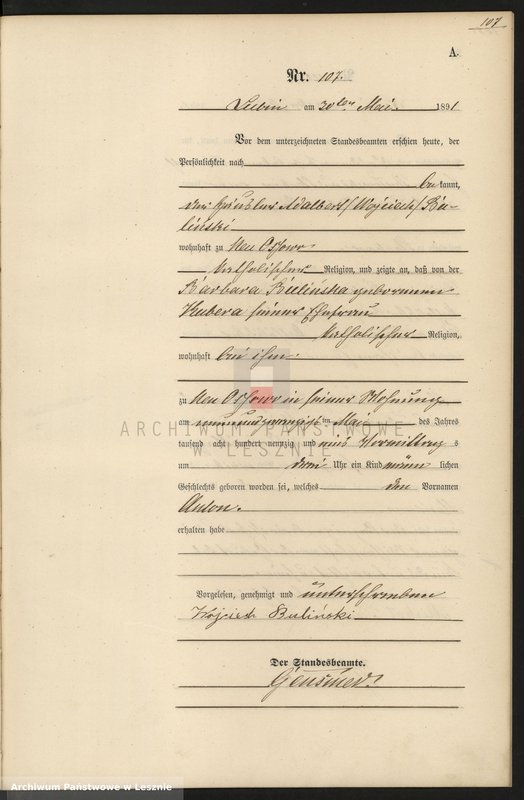 107
A.
Nr. 107.
Lubin am 30ten Mai 1891
Vor dem unterzeichneten Standesbeamten erschien heute, der
Persönlichkeit nach
bekannt,
der Häusler Adalbert (Wojciech) Bu-
liński
wohnhaft zu Neu Ossowo
katholischer Religion, und zeigte an, daß von der
Barbara Bulinska geborenen
Kubera seiner Ehefrau
katholischer Religion,
wohnhaft bei ihm
zu Neu Ossowo in seiner Wohnung
am neunundzwanzigsten Mai des Jahres
tausend acht hundert neunzig und eins Vormittag s
um drei Uhr ein Kind männ lichen
Geschlechts geboren worden sei, welches den Vornamen
Anton.
erhalten habe
Vorgelesen, genehmigt und unterschrieben
Wojciech Buliński
Der Standesbeamte.
ARCHIWUM PAŃSTWOWE
W LESZNIE
Archiwum Państwowe w Lesznie